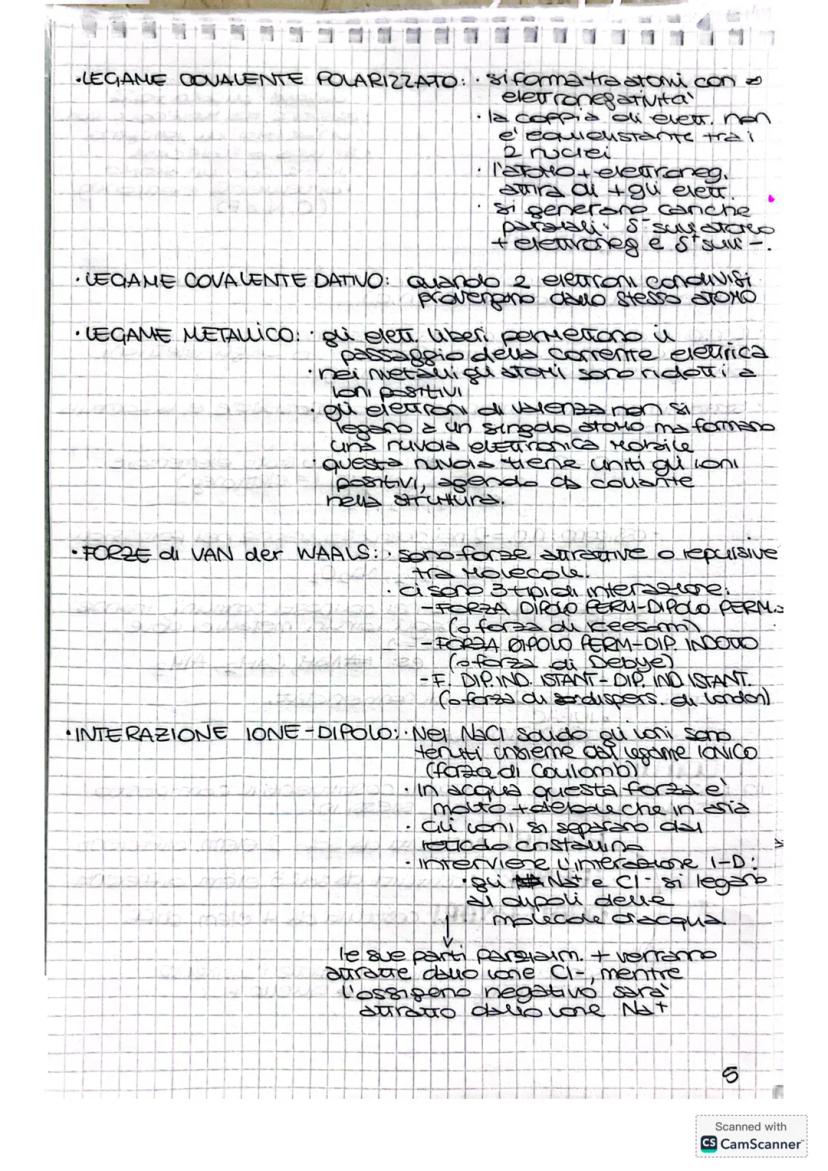 • LEGAME COVALENTE POLARIZZATO: • si forma tra atomi con ≠
elettronegatività
• la coppia di elett. non
è equidistante tra i
2 nuclei
• l'atomo + elettroneg.
attira di + gli elett.
• si generano cariche
parziali: δ- sull'atomo
+ elettroneg e δ+ sull' -.
• LEGAME COVALENTE DATIVO: quando 2 elettroni condivisi
provengono dallo stesso atomo
• LEGAME METALLICO: • gli elett. liberi permettono il
passaggio della corrente elettrica
• nei metalli gli atomi sono ridotti a
ioni positivi
• gli elettroni di valenza non si
legano a un singolo atomo ma formano
una nuvola elettronica mobile
• questa nuvola tiene uniti gli ioni
positivi, agendo da collante
nella struttura.
• FORZE di VAN der WAALS: • sono forze attrattive o repulsive
tra molecole.
• ci sono 3 tipi di interazione:
- FORZA DIPOLO PERM-DIPOLO PERM.
(o forza di Keesom)
- FORZA DIPOLO PERM-DIP. INDOTTO
(o forza di Debye)
- F. DIP. IND. ISTANT - DIP. IND. ISTANT.
(o forza di dispers. di London)
• INTERAZIONE IONE-DIPOLO: • Nel NaCl solido gli ioni sono
tenuti insieme dal legame IONICO
(forza di Coulomb)
• In acqua questa forza è
molto + debole che in aria
• Gli ioni si separano dal
reticolo cristallino
• Interviene l'interazione I-D:
• gli Na+ e Cl- si legano
ai dipoli delle
molecole d'acqua.
↓
le sue parti parzialm. + verranno
attratte dallo ione Cl-, mentre
l'ossigeno negativo sarà
attratto dallo ione Na+
5
Scanned with
CS CamScanner